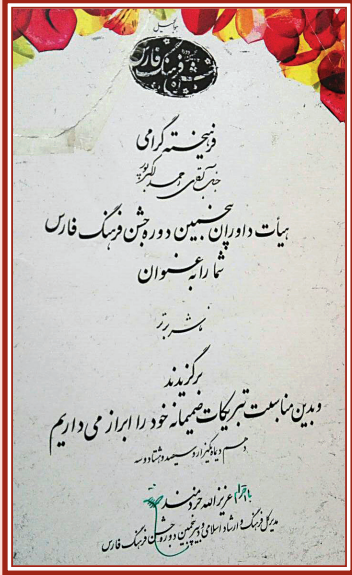 جشن فرهنگ فارس
فرهیخته گرامی
جناب آقای احمد اکبرپور
هیأت داوران پنجمین دوره جشن فرهنگ فارس
شما را به عنوان
ناشر برتر
برگزیدند
و بدین مناسبت تبریکات صمیمانه خود را ابراز می داریم
دهم دیماه یکهزار و سیصد و هشتاد و سه
با احترام عزیزالله خردمند
مدیر کل فرهنگ و ارشاد اسلامی و دبیر پنجمین دوره جشن فرهنگ فارس